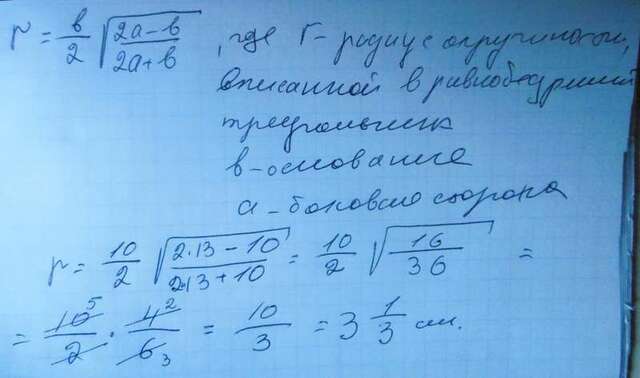 r = b/2 √((2a-b)/(2a+b)) , где r - радиус окружности,
вписанной в равнобедренный
треугольник
b - основание
a - боковая сторона
r = 10/2 √((2·13-10)/(2·13+10)) = 10/2 √(16/36) =
= 10/2 · 4/6 = 10/3 = 3 1/3 см.